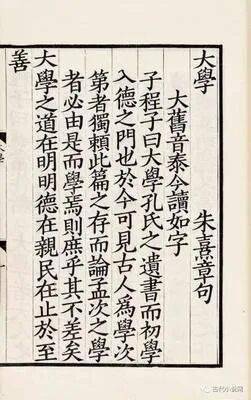 大學　朱熹章句
大舊音泰今讀如字
子程子曰大學孔氏之遺書而初學
入德之門也於今可見古人爲學次
第者獨賴此篇之存而論孟次之學
者必由是而學焉則庶乎其不差矣
大學之道在明明德在親民在止於至
善
古代小说网